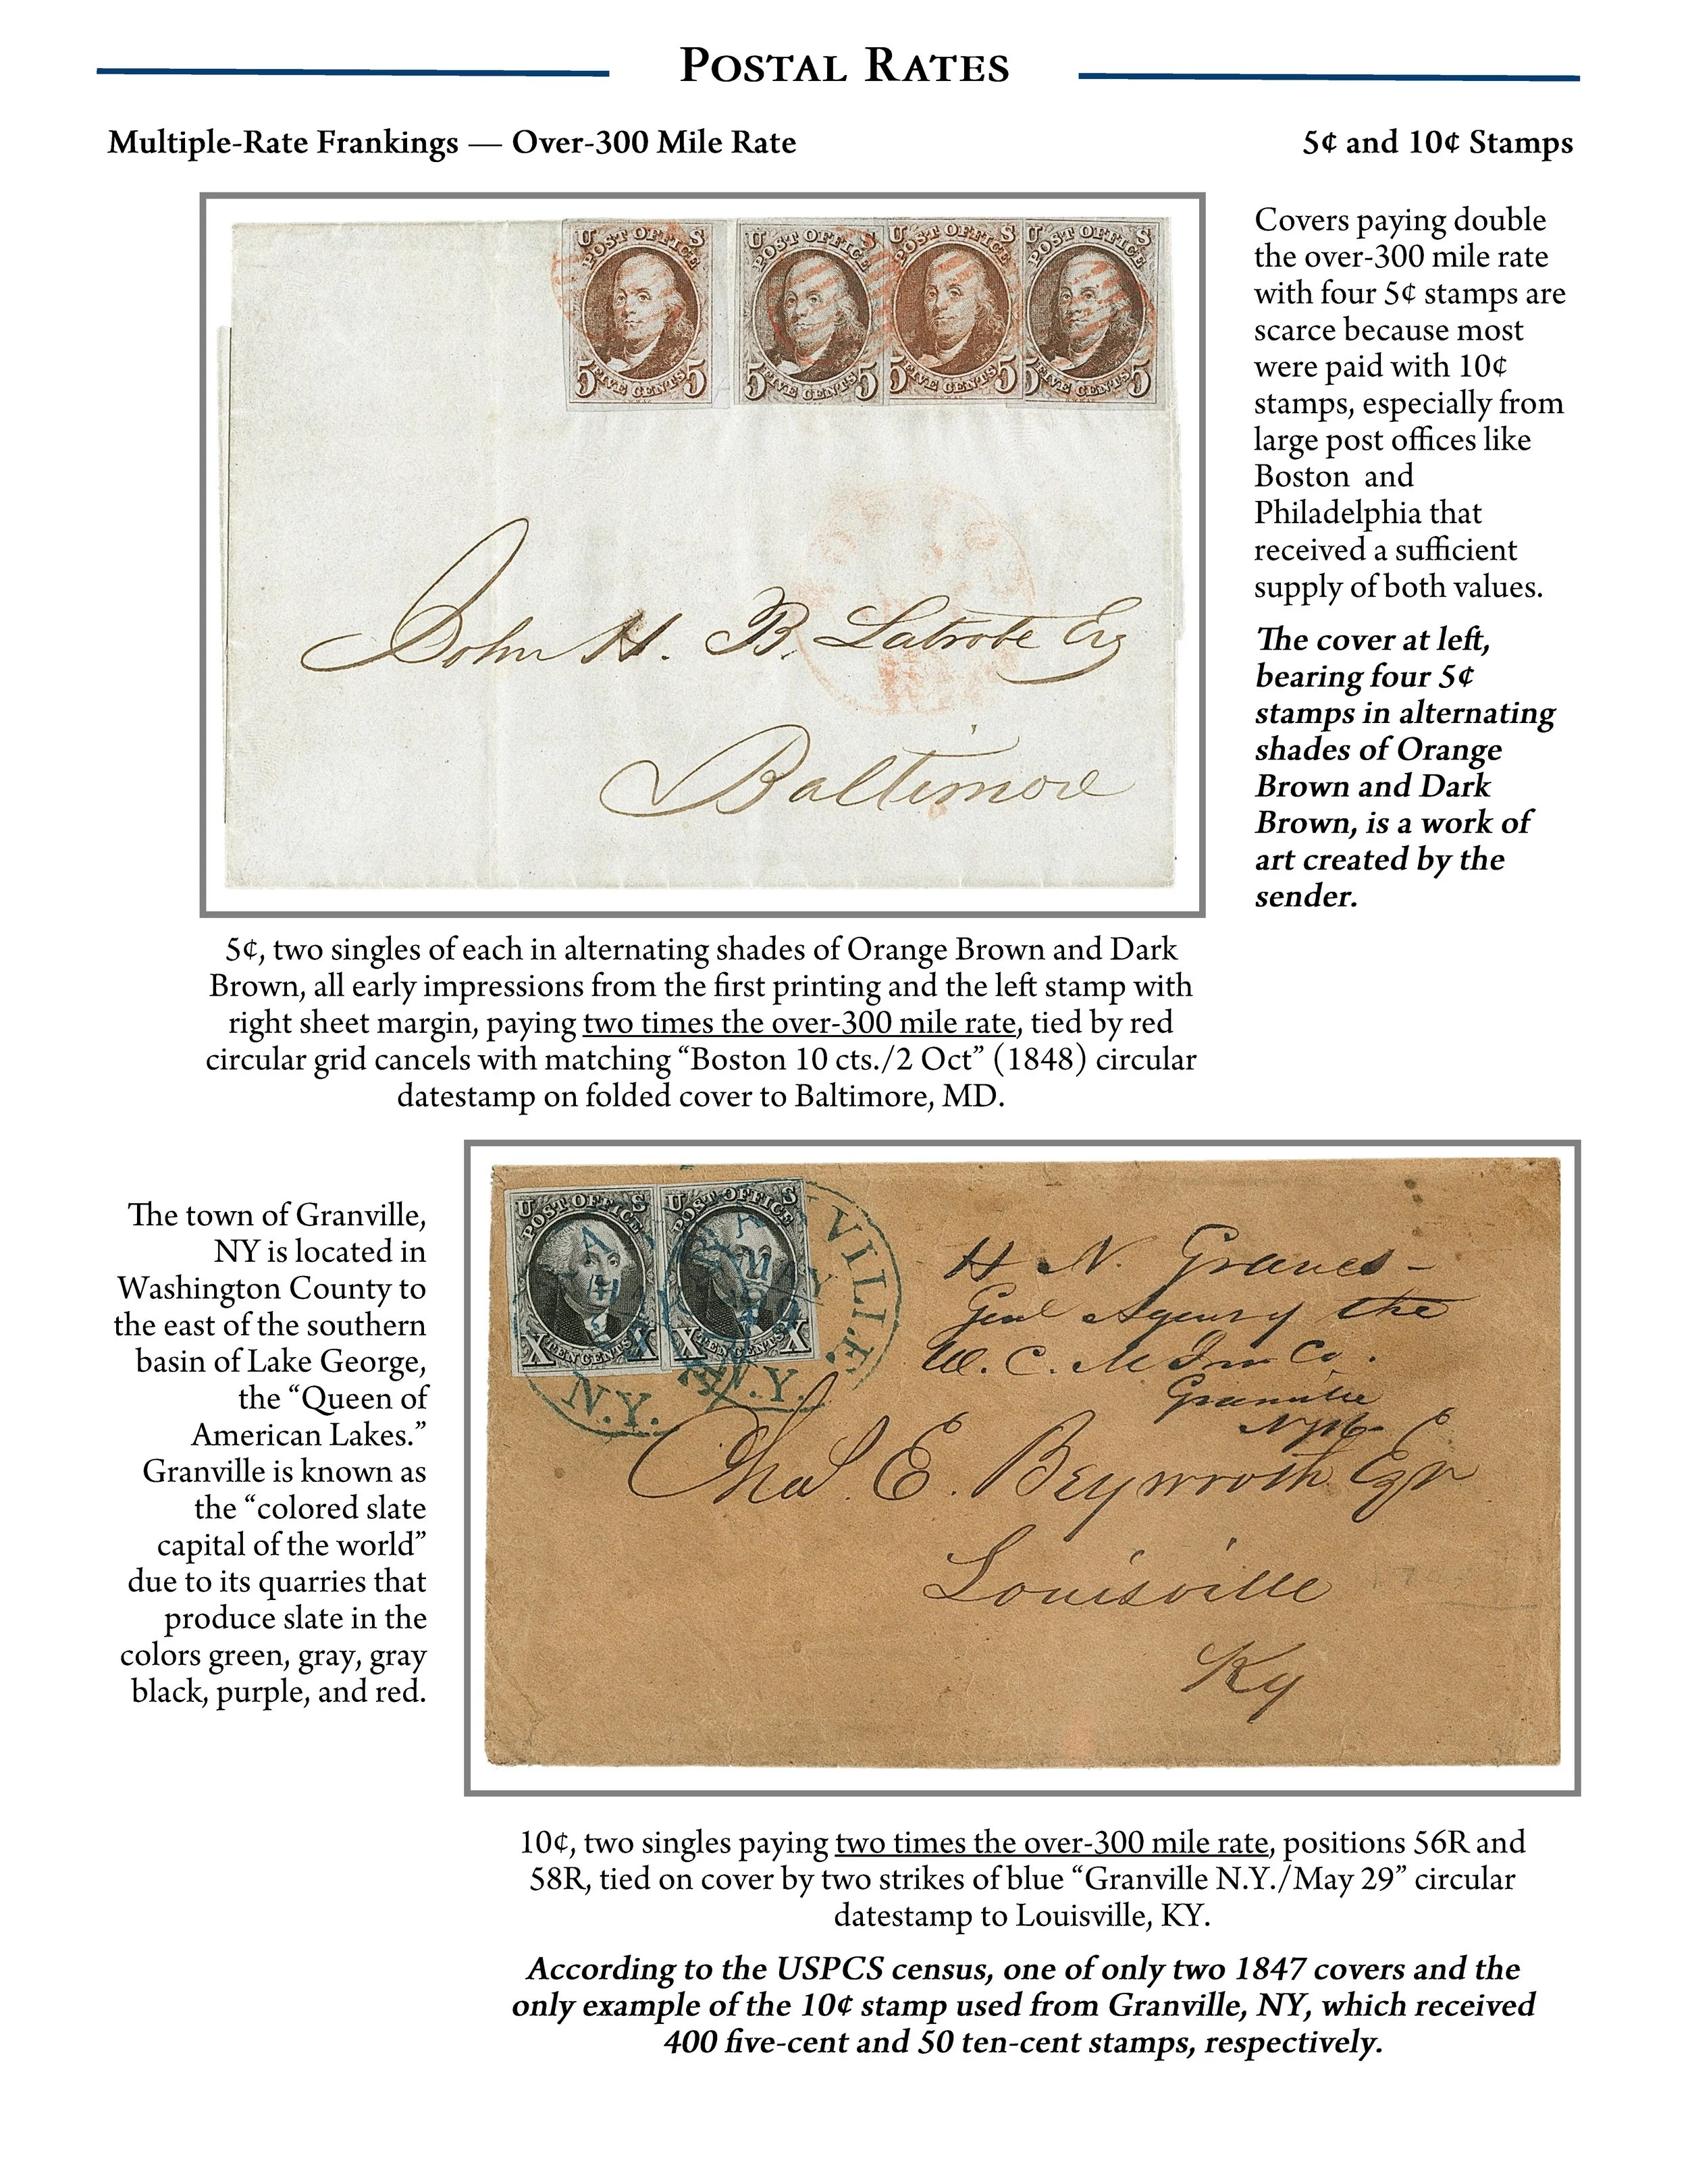 POSTAL RATES
Multiple-Rate Frankings — Over-300 Mile Rate
5¢ and 10¢ Stamps
U POST OFFICE S
5 FIVE CENTS 5
U POST OFFICE S
5 FIVE CENTS 5
U POST OFFICE S
5 FIVE CENTS 5
U POST OFFICE S
5 FIVE CENTS 5
John H. B. Latrobe Esq
Baltimore
Covers paying double
the over-300 mile rate
with four 5¢ stamps are
scarce because most
were paid with 10¢
stamps, especially from
large post offices like
Boston and
Philadelphia that
received a sufficient
supply of both values.
The cover at left,
bearing four 5¢
stamps in alternating
shades of Orange
Brown and Dark
Brown, is a work of
art created by the
sender.
5¢, two singles of each in alternating shades of Orange Brown and Dark
Brown, all early impressions from the first printing and the left stamp with
right sheet margin, paying two times the over-300 mile rate, tied by red
circular grid cancels with matching “Boston 10 cts./2 Oct” (1848) circular
datestamp on folded cover to Baltimore, MD.
The town of Granville,
NY is located in
Washington County to
the east of the southern
basin of Lake George,
the “Queen of
American Lakes.”
Granville is known as
the “colored slate
capital of the world”
due to its quarries that
produce slate in the
colors green, gray, gray
black, purple, and red.
U POST OFFICE S
X TEN CENTS X
U POST OFFICE S
X TEN CENTS X
VILLE
N.Y.
N.Y.
H N. Graves -
Genl Agency the
W. C. M Ins Co.
Granville
Chas. E. Beynroth Esqr
Louisville
Ky
10¢, two singles paying two times the over-300 mile rate, positions 56R and
58R, tied on cover by two strikes of blue “Granville N.Y./May 29” circular
datestamp to Louisville, KY.
According to the USPCS census, one of only two 1847 covers and the
only example of the 10¢ stamp used from Granville, NY, which received
400 five-cent and 50 ten-cent stamps, respectively.